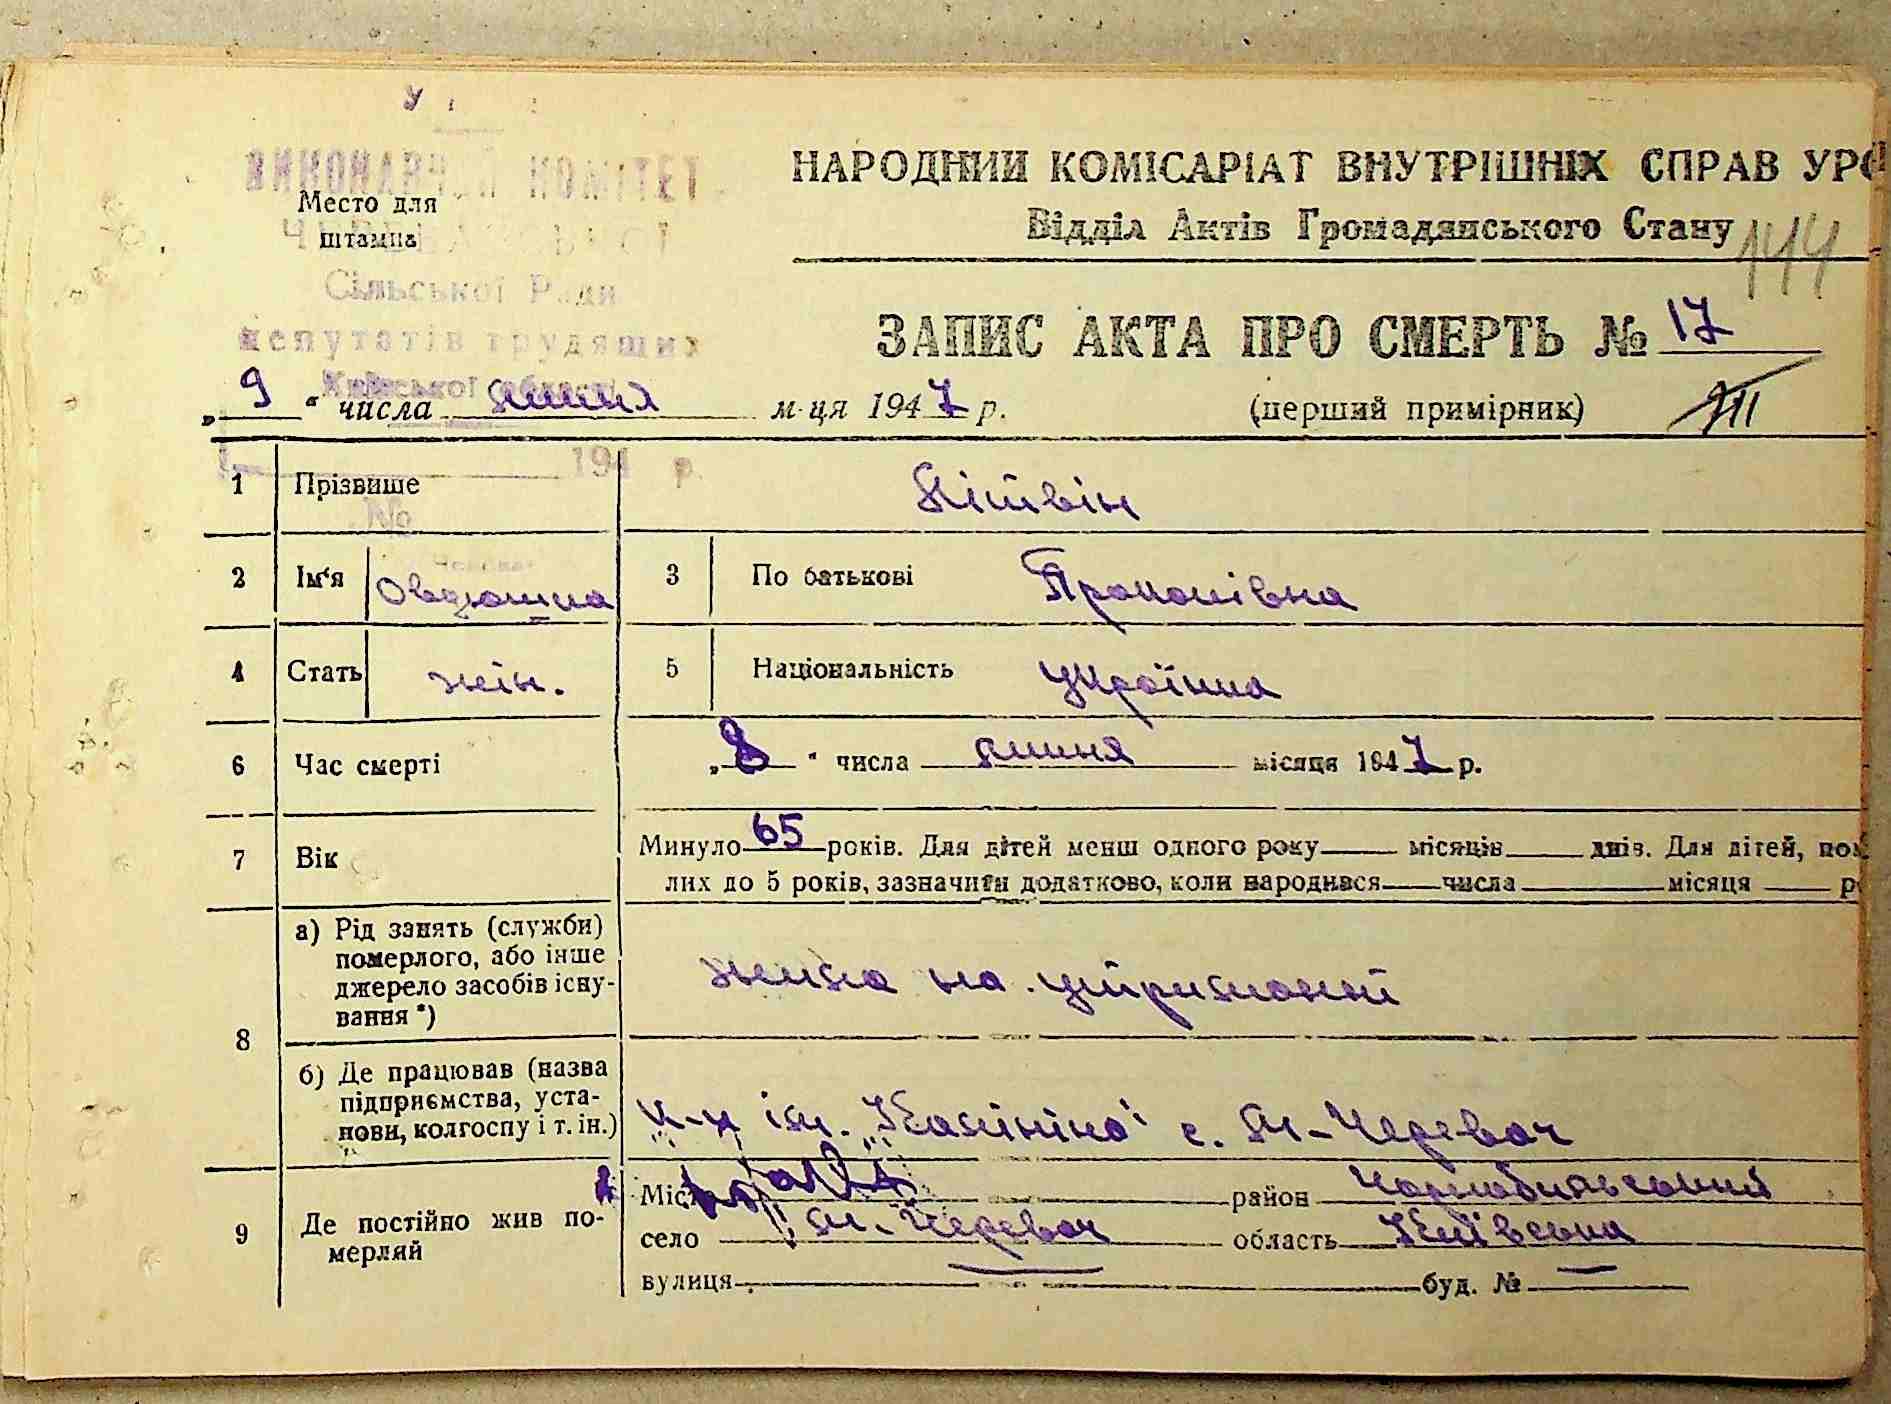 ВИКОНАВЧИЙ КОМІТЕТ
Место для
штампа
Сільської Ради
депутатів трудящих
Київської області
194 р.
№
НАРОДНИЙ КОМІСАРІАТ ВНУТРІШНІХ СПРАВ УРС
Відділ Актів Громадянського Стану
144
ЗАПИС АКТА ПРО СМЕРТЬ № 17
„ 9 " числа липня м-ця 1947 р. (перший примірник)
1 Прізвище Літвін
2 Ім'я Овдюшка 3 По батькові Прокопівна
4 Стать жін. 5 Національність українка
6 Час смерті „ 8 " числа липня місяця 1947 р.
7 Вік Минуло 65 років. Для дітей менш одного року місяців днів. Для дітей, пом
лих до 5 років, зазначити додатково, коли народився числа місяця р
8 а) Рід занять (служби)
померлого, або інше
джерело засобів існу-
вання *) жила на утриманні
б) Де працював (назва
підприємства, уста-
нови, колгоспу і т. ін.) к-п ім. "Калініна" с. М-Черевач
9 Де постійно жив по-
мерлий
Місто район Чорнобильський
село М-Черевач область Київська
вулиця буд. № —